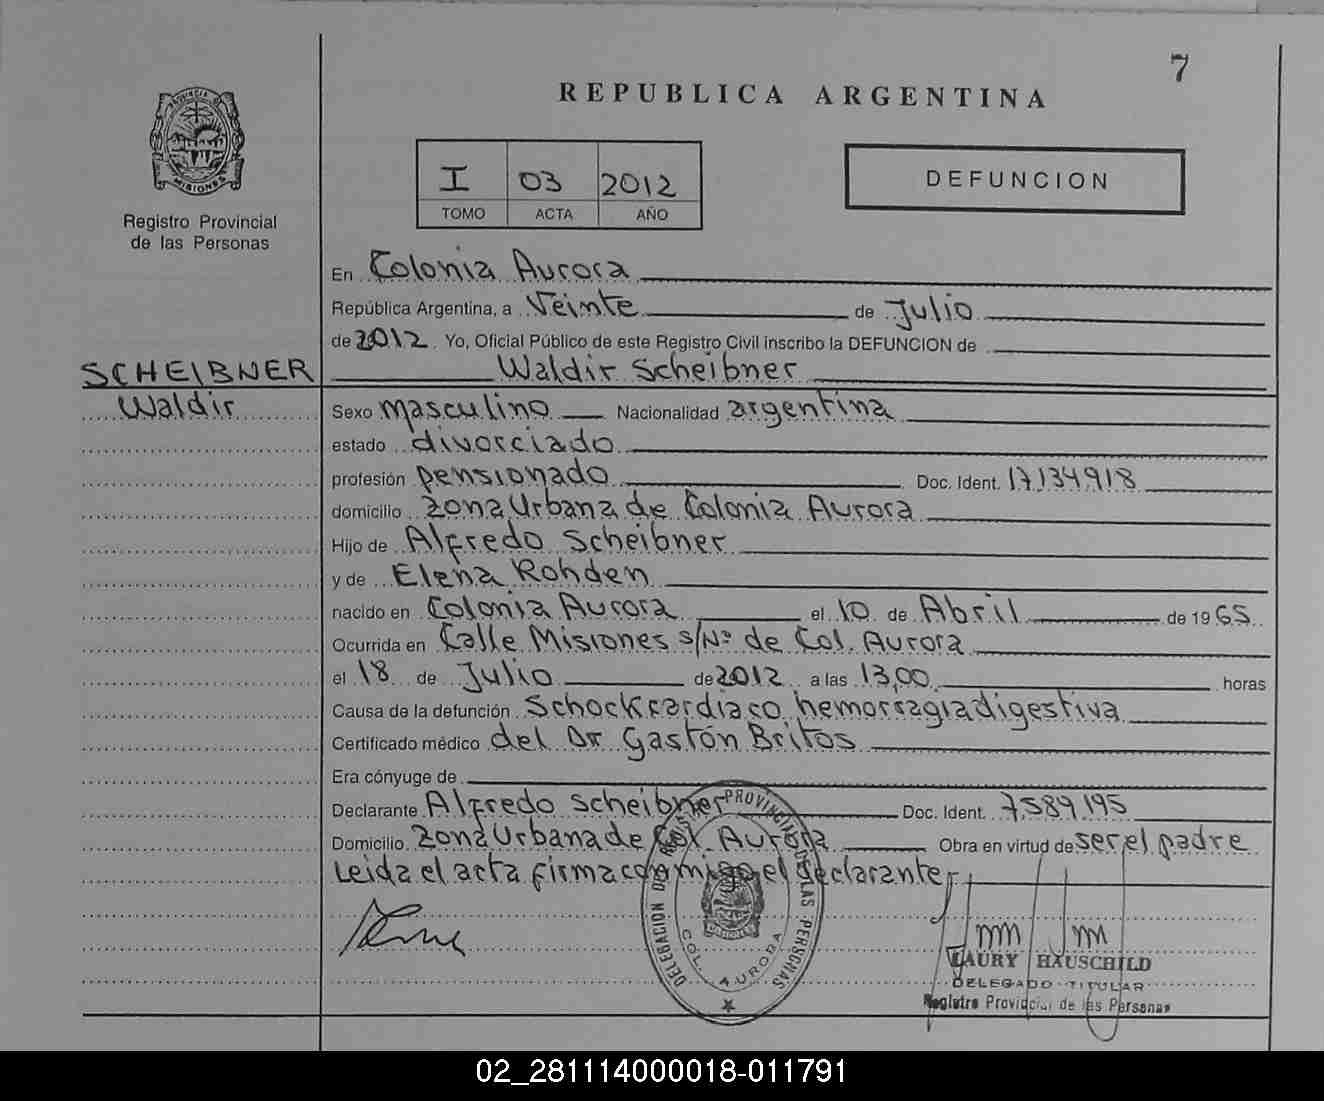 7
REPUBLICA ARGENTINA
PROVINCIA D
MISIONES
Registro Provincial
de las Personas
I 03 2012
TOMO ACTA AÑO
DEFUNCION
En Colonia Aurora
República Argentina, a Veinte de Julio
de 2012 Yo, Oficial Público de este Registro Civil inscribo la DEFUNCION de
SCHEIBNER
Waldir Scheibner
Waldir
Sexo masculino Nacionalidad argentina
estado divorciado
profesión pensionado Doc. Ident. 17.134.918
domicilio zona Urbana de Colonia Aurora
Hijo de Alfredo Scheibner
y de Elena Rohden
nacido en Colonia Aurora el 10 de Abril de 1965
Ocurrida en Calle Misiones s/Nº de Col. Aurora
el 18 de Julio de 2012 a las 13,00 horas
Causa de la defunción Schock cardiaco, hemorragia digestiva
Certificado médico del Dr Gastón Britos
Era cónyuge de
Declarante Alfredo Scheibner Doc. Ident. 7.589.195
Domicilio zona Urbana de Col. Aurora Obra en virtud de ser el padre
Leida el acta firma conmigo el declarante
DELEGACION DE REGISTRO PROVINCIAL DE LAS PERSONAS
COL. AURORA
MISIONES
LAURY HAUSCHILD
DELEGADO TITULAR
Registro Provincial de las Personas
02_281114000018-011791